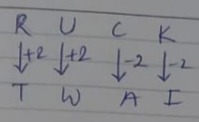 R U C K
↓+2 ↓+2 ↓-2 ↓-2
T W A I